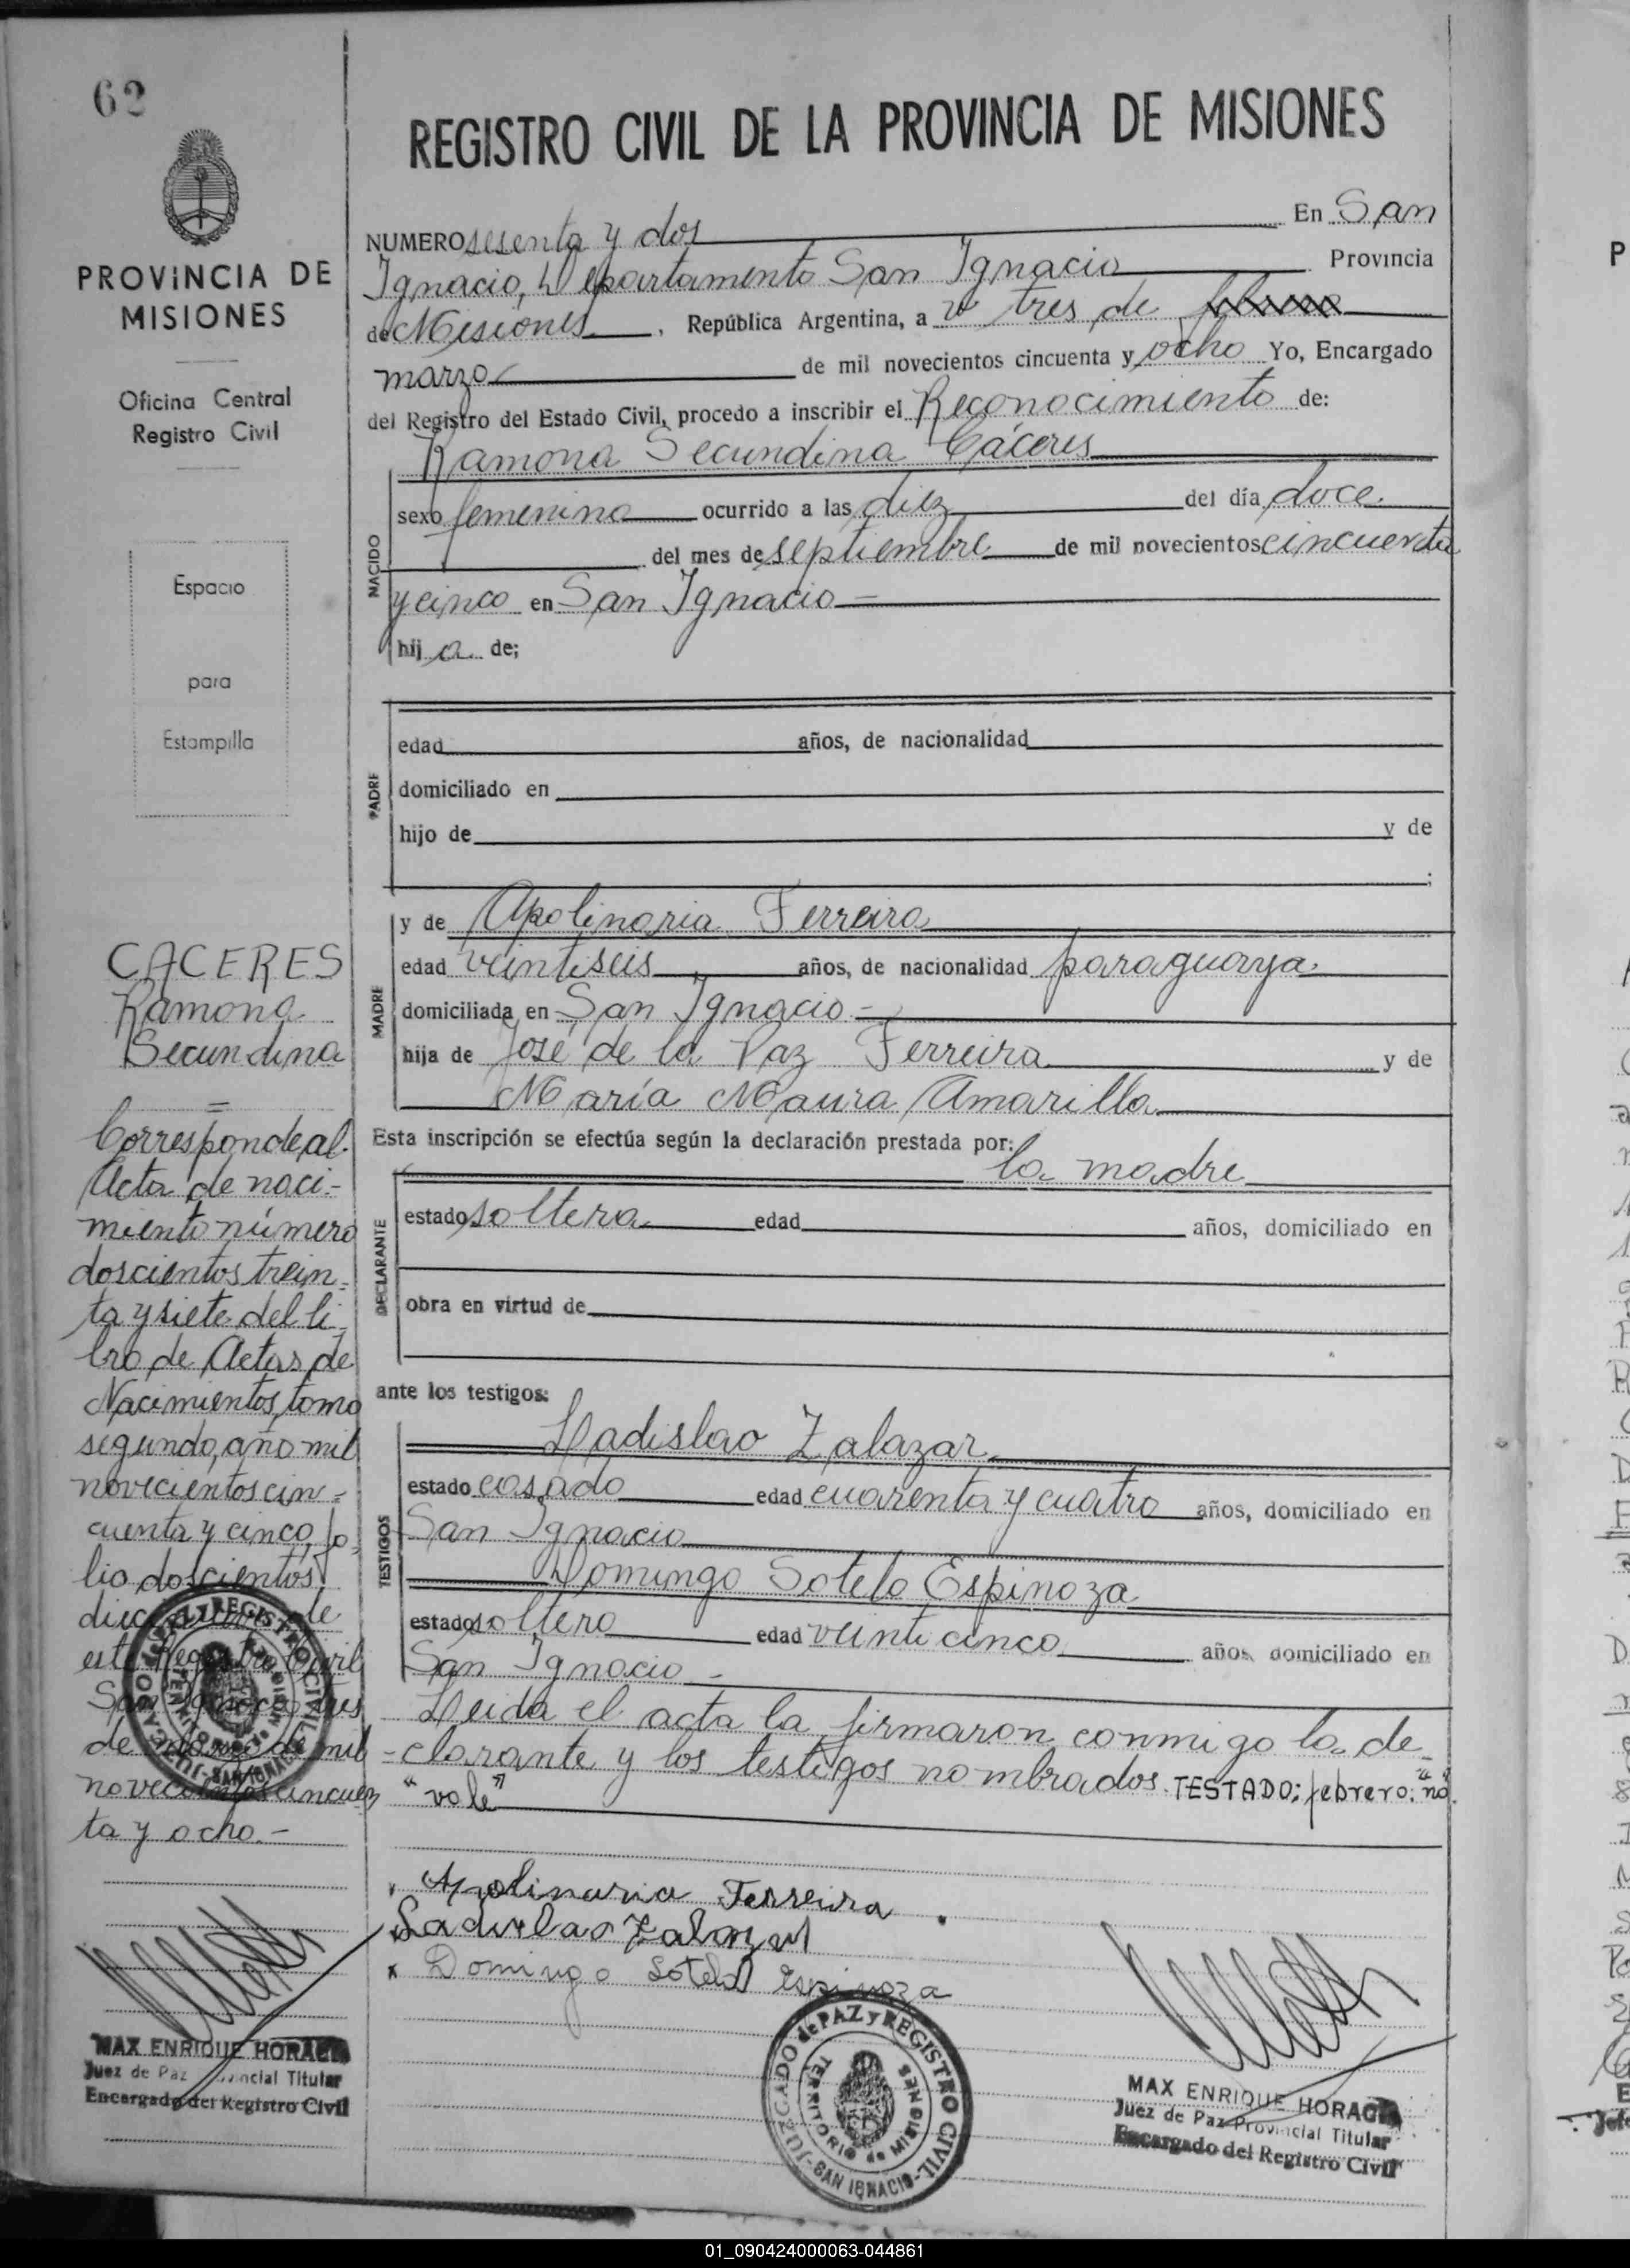 62
PROVINCIA DE
MISIONES
Oficina Central
Registro Civil
Espacio
para
Estampilla
CACERES
Ramona
Secundina
=
Corresponde al
Acta de naci-
miento número
doscientos trein-
ta y siete del li-
bro de Actas de
Nacimientos, tomo
segundo, año mil
novecientos cin-
cuenta y cinco, fo-
lio doscientos
de
este Registro Civil
San Ignacio, tres
de marzo de mil
novecientos cincuen
ta y ocho.-
MAX ENRIQUE HORAC
Juez de Paz Provincial Titular
Encargado del Registro Civil
REGISTRO CIVIL DE LA PROVINCIA DE MISIONES
NUMERO sesenta y dos En San
Ignacio, Departamento San Ignacio Provincia
de Misiones, República Argentina, a tres de febrero
marzo de mil novecientos cincuenta y ocho Yo, Encargado
del Registro del Estado Civil, procedo a inscribir el Reconocimiento de:
Ramona Secundina Cáceres
NACIDO
sexo femenino ocurrido a las diez del día doce.
del mes de septiembre de mil novecientos cincuenta
y cinco en San Ignacio
hija de;
PADRE
edad años, de nacionalidad
domiciliado en
hijo de y de
;
MADRE
y de Apolinaria Ferreira
edad veintiseis años, de nacionalidad paraguaya.
domiciliada en San Ignacio.-
hija de José de la Paz Ferreira y de
María Maura Amarilla
Esta inscripción se efectúa según la declaración prestada por:
la madre
DECLARANTE
estado soltera edad años, domiciliado en
obra en virtud de
ante los testigos:
TESTIGOS
Ladislao Zalazar
estado casado edad cuarenta y cuatro años, domiciliado en
San Ignacio
Domingo Sotelo Espinoza
estado soltero edad veinticinco años, domiciliado en
San Ignacio-
Leida el acta la firmaron conmigo la de-
clarante y los testigos nombrados. TESTADO: febrero: "no
"vale"
Apolinaria Ferreira.
Ladislao Zalazar
x Domingo Sotelo Espinoza
JUZGADO de PAZ y REGISTRO CIVIL
TERRITORIO de MISIONES
-SAN IGNACIO-
MAX ENRIQUE HORAC
Juez de Paz Provincial Titular
Encargado del Registro Civil
01_090424000063-044861